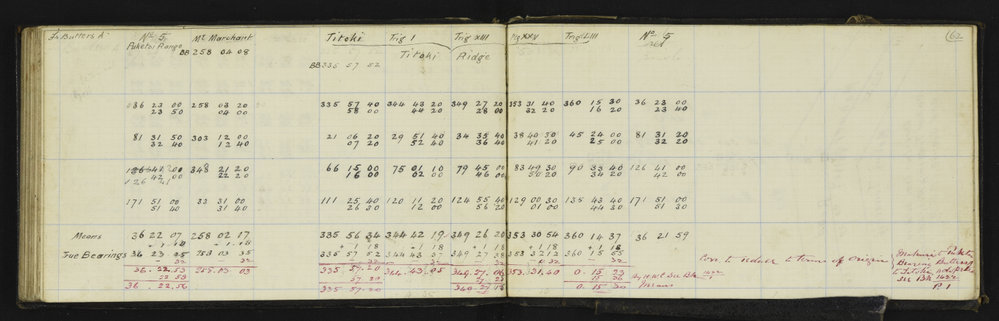 To Butters A. No 5 Mt Marchant Titoki Trig I Trig XIII Trig XXV Trig LIII No 5 62
Puketoi Range BB 258 04 08 Titoki Ridge
BB 335 57 52
036 23 00 258 03 20 335 57 40 344 43 20 349 27 20 353 31 40 360 15 30 36 23 00
23 50 04 00 58 00 44 20 28 00 32 20 16 20 23 40
81 31 50 303 12 00 21 06 20 29 51 40 34 35 40 38 40 30 45 24 00 81 31 20
32 40 12 40 07 20 52 40 36 40 41 20 25 00 32 20
348 21 20 66 15 00 75 01 10 79 45 00 83 49 30 90 33 40 126 41 00
42 00 22 20 16 00 02 00 46 00 50 20 34 20 42 00
171 51 00 33 31 00 111 25 40 120 11 20 124 55 40 129 00 30 135 43 40 171 51 00
51 40 31 40 26 30 12 00 56 20 01 00 44 30 51 30
Means 36 22 07 258 02 17 335 56 34 344 42 19 349 26 20 353 30 54 360 14 37 36 21 59
+ 1 18 + 1 18 + 1 18 + 1 18 + 1 18 + 1 18 + 1 18
True Bearings 36 23 25 258 03 35 335 57 52 344 43 37 349 27 38 353 32 12 360 15 55
- 32 - 32 - 32 - 32 - 0 32 - 32 Corr. to reduce to terms of origin
36. 22. 53 258. 03. 03 335. 57. 20 344. 43. 05 349. 27. 06 353. 31. 40 0. 15 23
22 59 57 20 By H.Mt See Bk 1422
36. 22. 56 335. 57. 20 349. 27 0. 15. 30 Means
Bearing Butters
to Titoki
see Bk 1422
P. 1